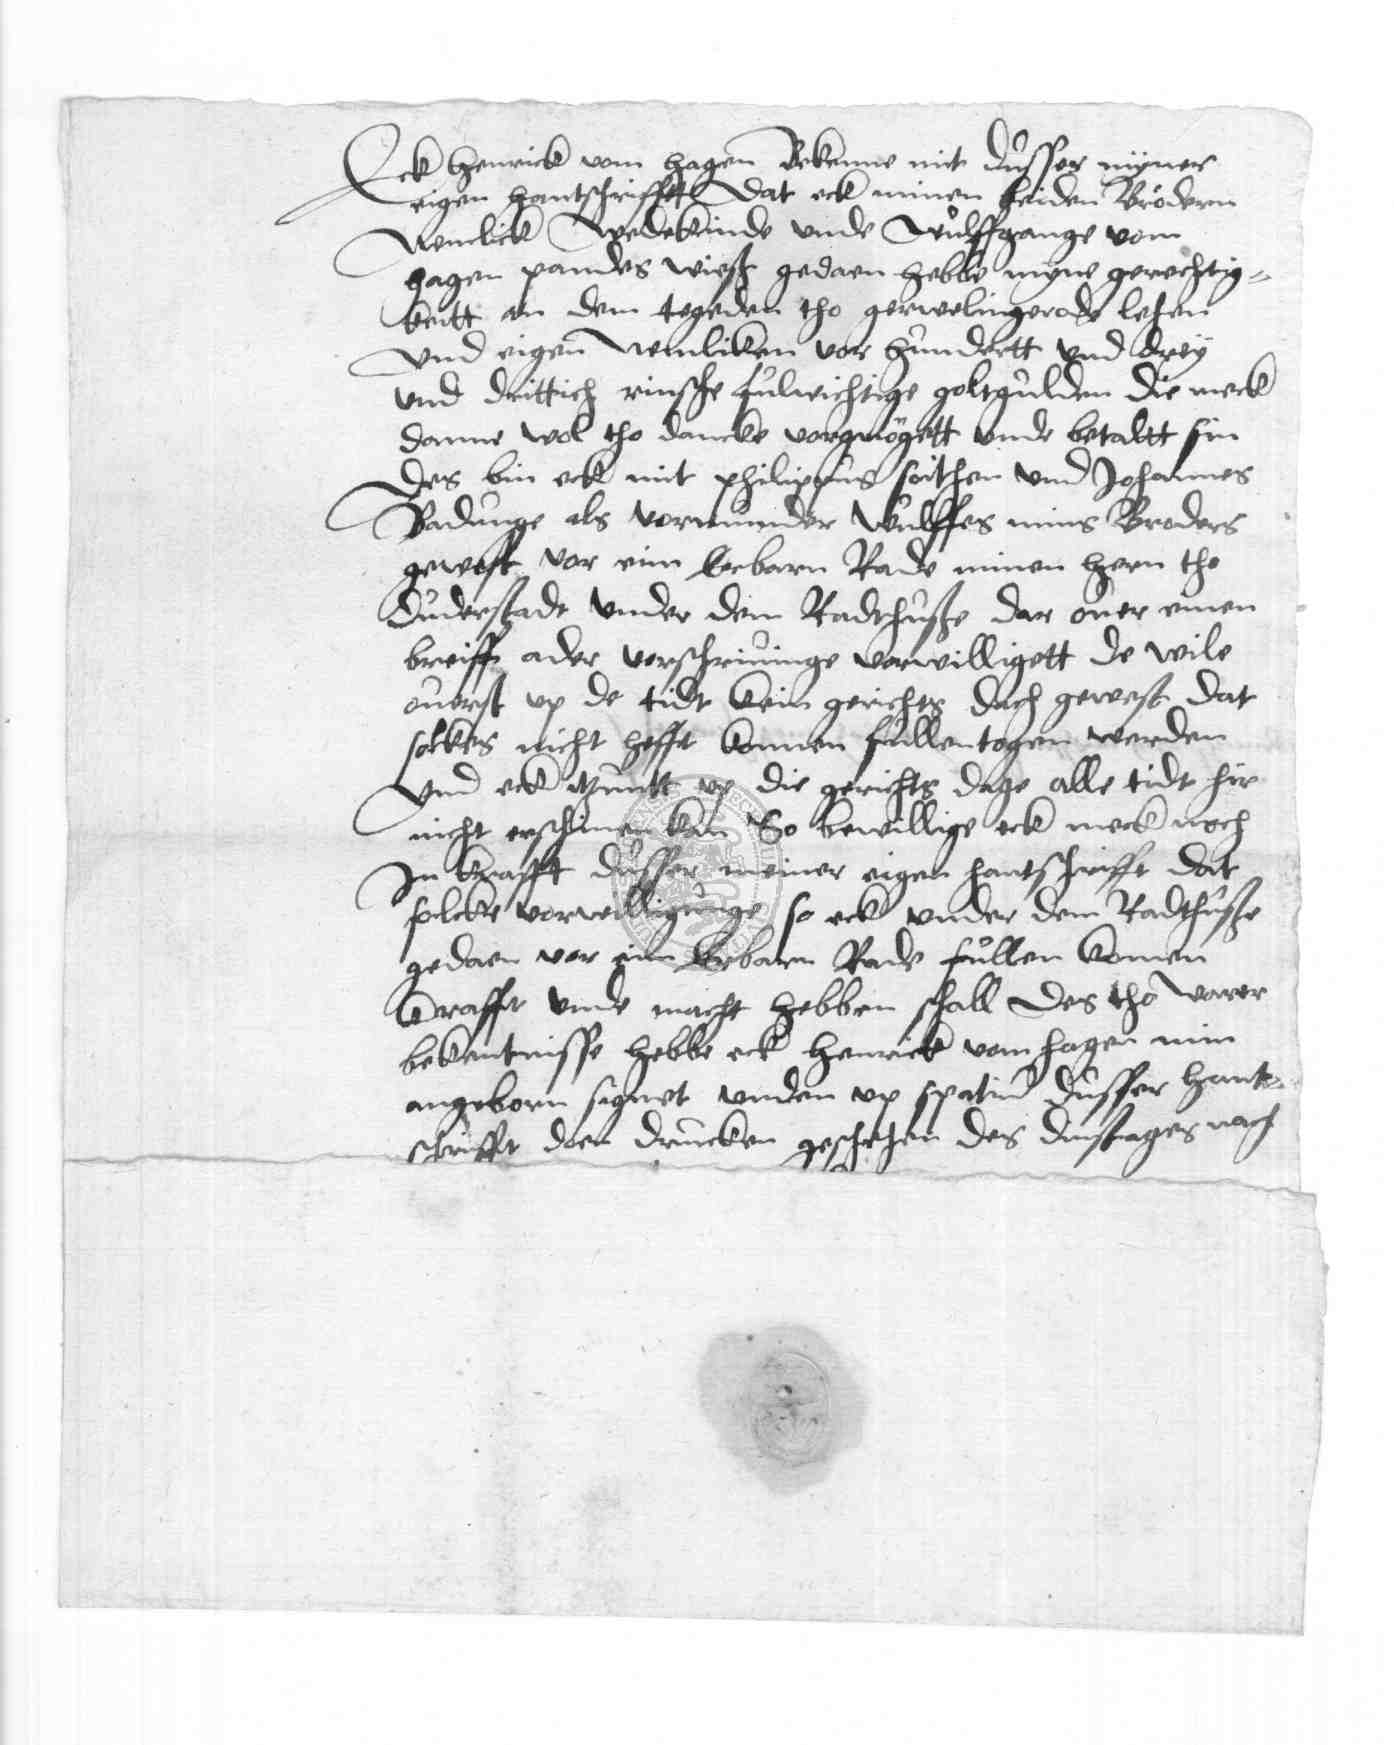 Eck Henrick vom Hagen Bekenne mit dusser myner
eigen hantschrifft Dat eck minen beiden Brödern
Nemelick Wedekinde vnde Wulffgange vom
Hagen pandes wieß gedaen hebbe myne gerechtig-
keitt an dem tegeden tho gerwelingerode lehen
Vnd eigen Nemliken vor hundertt vnd drey
vnd drittich rinsche fulwichtige goltgulden Die meck
danne wol tho dancke vorgnögett vnde betaltt sin
Des bin eck mit philippus soithen vnd Johannes
Badunge als vormunder Wulffes mins Broders
gewest vor eim Erbarn Rade minen hern tho
Duderstadt vnder dem Radthuße dar ouer einen
breiff ader vorschriuinge vorwilligett de wile
ouerst vp de tidt kein gerichts dach gewest dat
solkes nicht hefft konnen fullentogen werden
Vnd eck itzuntt vp die gerichts dage alle tidt hir
nicht erschinen kan So bewillige eck meck noch
In krafft dusser meiner eigen hantschrifft dat
solcke vorwilligunge so eck vnder dem Radthuße
gedaen vor eim Erbarn Rade fullen komen
krafft vnde macht hebben schall Des tho warer
bekentnisse hebbe eck Henrick vom hagen min
angeborn signet vnden vp spatiu dusser hant-
schrifft doen drucken geschehen des dinstages nach